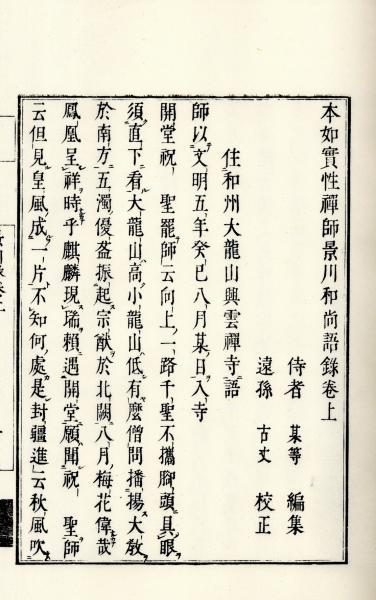 本如實性禪師景川和尚語錄卷上
侍者 某等 編集
遠孫 古丈 校正
住和州大龍山興雲禪寺語
師以文明五年癸巳八月某日入寺
開堂祝 聖罷師云向上一路千聖不攜腳頭具眼
須直下看大龍山高小龍山低有麼僧問播揚大敎
於南方五濁優盋振起宗猷於北闕八月梅花偉哉
鳳凰呈祥時乎麒麟現瑞頼遇開堂願聞祝 聖師
云但見皇風成一片不知何處是封疆進云秋風吹